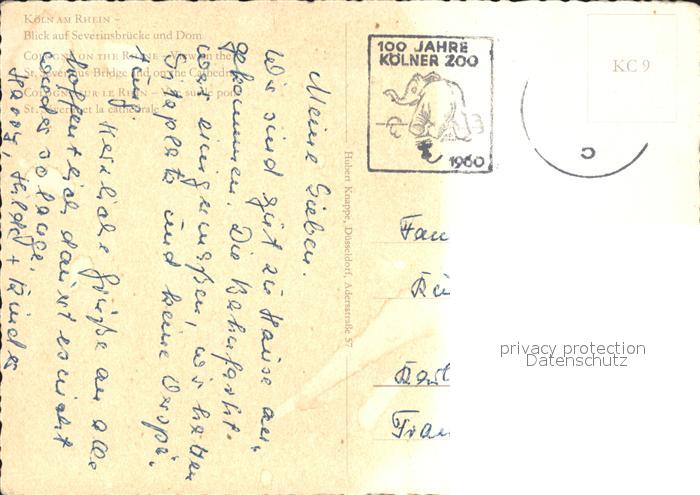 KÖLN AM RHEIN –
Blick auf Severinsbrücke und Dom
COLOGNE ON THE RHINE – View on the
St. Severinus Bridge and on the Cathedral
COLOGNE SUR LE RHIN – Vue sur le pont
St. Severin et la cathédrale
Meine Lieben.
Wir sind gut zu Hause an-
gekommen. Die Bahnfahrt
war einigermaßen, wir hatten
Sitzplatz und keine
Herzliche Grüße an alle
hoffentlich dauert es nicht
wieder so lange.
Harry, Hilde + Kinder
Hubert Knappe, Düsseldorf, Adersstraße 57
100 JAHRE
KÖLNER ZOO
1960
KC 9
Fam
privacy protection
Datenschutz